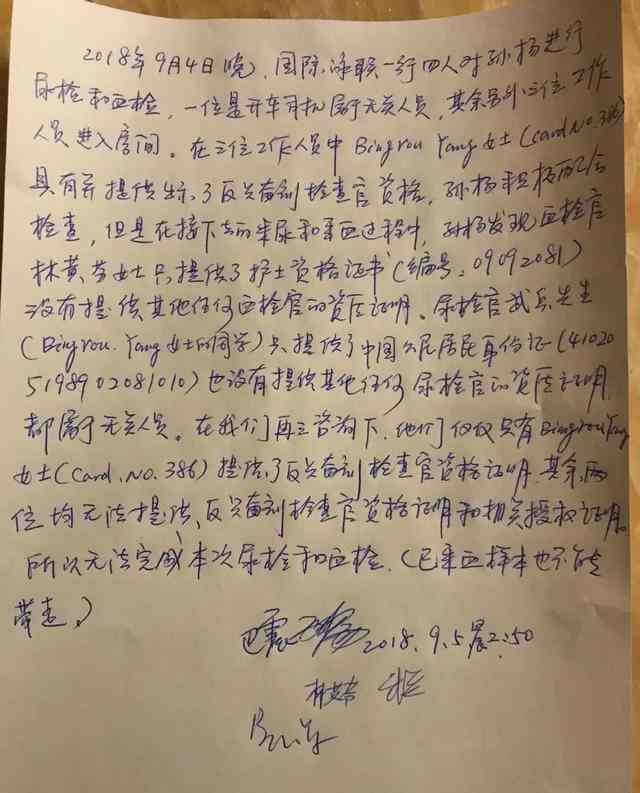 2018年9月4日晚，国际泳联一行四人对孙杨进行
尿检和血检，一位是开车司机属于无关人员，其余另外三位工作
人员进入房间。在三位工作人员中 Bingrou Yang 女士（card.No.386）
具有并提供出示了反兴奋剂检查官资格，孙杨积极配合
检查，但是在接下去的采尿和采血过程中，孙杨发现血检官
林 女士只提供了护士资格证书（编号：09092081）
没有提供其他任何血检官的资质证明。尿检官 先生
（Bingrou. Yang 女士的同学）只提供了中国公民居民身份证（41020
5198902081010）也没有提供其他任何尿检官的资质证明，
都属于无关人员。在我们再三咨询下，他们仅仅只有Bingrou Yang
女士（Card.No.386）提供了反兴奋剂检查官资格证明，其余两
位均无法提供反兴奋剂检查官资格证明和相关授权证明。
所以无法完成本次尿检和血检。（已采血样本也不能
带走。）
2018.9.5晨2:50